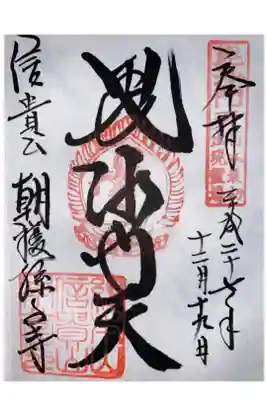 奉拝
平成二十七年
十二月十九日
毘沙門天
信貴山
朝護孫子寺